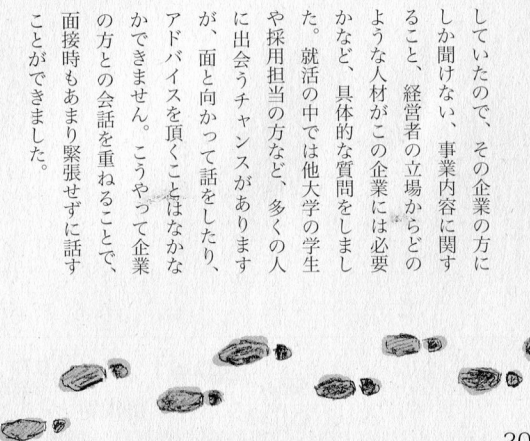 していたので、その企業の方に
しか聞けない、事業内容に関す
ること、経営者の立場からどの
ような人材がこの企業には必要
かなど、具体的な質問をしまし
た。就活の中では他大学の学生
や採用担当の方など、多くの人
に出会うチャンスがあります
が、面と向かって話をしたり、
アドバイスを頂くことはなかな
かできません。こうやって企業
の方との会話を重ねることで、
面接時もあまり緊張せずに話す
ことができました。